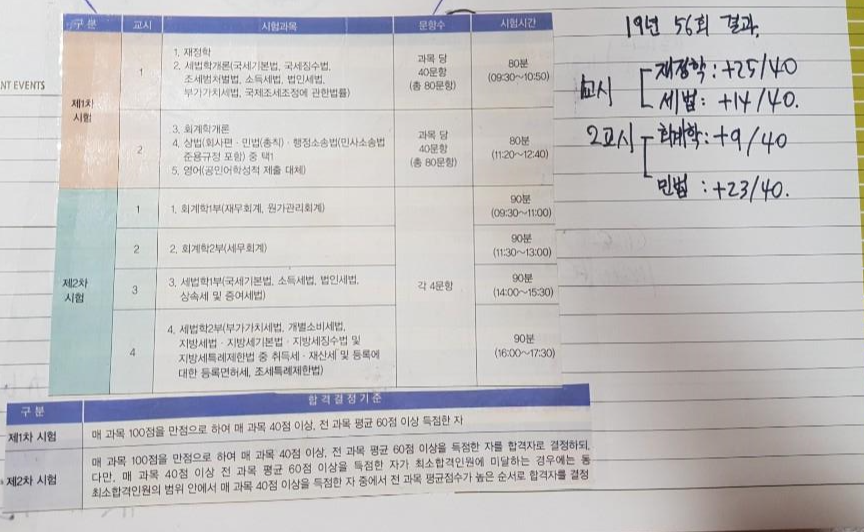 NT EVENTS
구 분 교시 시험과목 문항수 시험시간
제1차
시험
1
1. 재정학
2. 세법학개론(국세기본법, 국세징수법,
조세범처벌법, 소득세법, 법인세법,
부가가치세법, 국제조세조정에 관한법률)
과목 당
40문항
(총 80문항)
80분
(09:30~10:50)
2
3. 회계학개론
4. 상법(회사편·민법(총칙)·행정소송법(민사소송법
준용규정 포함) 중 택1
5. 영어(공인어학성적 제출 대체)
과목 당
40문항
(총 80문항)
80분
(11:20~12:40)
제2차
시험
1
1. 회계학1부(재무회계, 원가관리회계)
90분
(09:30~11:00)
2
2. 회계학2부(세무회계)
90분
(11:30~13:00)
3
3. 세법학1부(국세기본법, 소득세법, 법인세법,
상속세 및 증여세법)
각 4문항
90분
(14:00~15:30)
4
4. 세법학2부(부가가치세법, 개별소비세법,
지방세법·지방세기본법·지방세징수법 및
지방세특례제한법 중 취득세·재산세 및 등록에
대한 등록면허세, 조세특례제한법)
90분
(16:00~17:30)
구 분 합격결정기준
제1차 시험 매 과목 100점을 만점으로 하여 매 과목 40점 이상, 전 과목 평균 60점 이상 득점한 자
제2차 시험
매 과목 100점을 만점으로 하여 매 과목 40점 이상, 전 과목 평균 60점 이상을 득점한 자를 합격자로 결정하되,
다만, 매 과목 40점 이상 전 과목 평균 60점 이상을 득점한 자가 최소합격인원에 미달하는 경우에는 동
최소합격인원의 범위 안에서 매 과목 40점 이상을 득점한 자 중에서 전 과목 평균점수가 높은 순서로 합격자를 결정
19년 56회 결과.
1교시 재정학 : +25/40
세법 : +14/40.
2교시 회계학 : +9/40
민법 : +23/40.